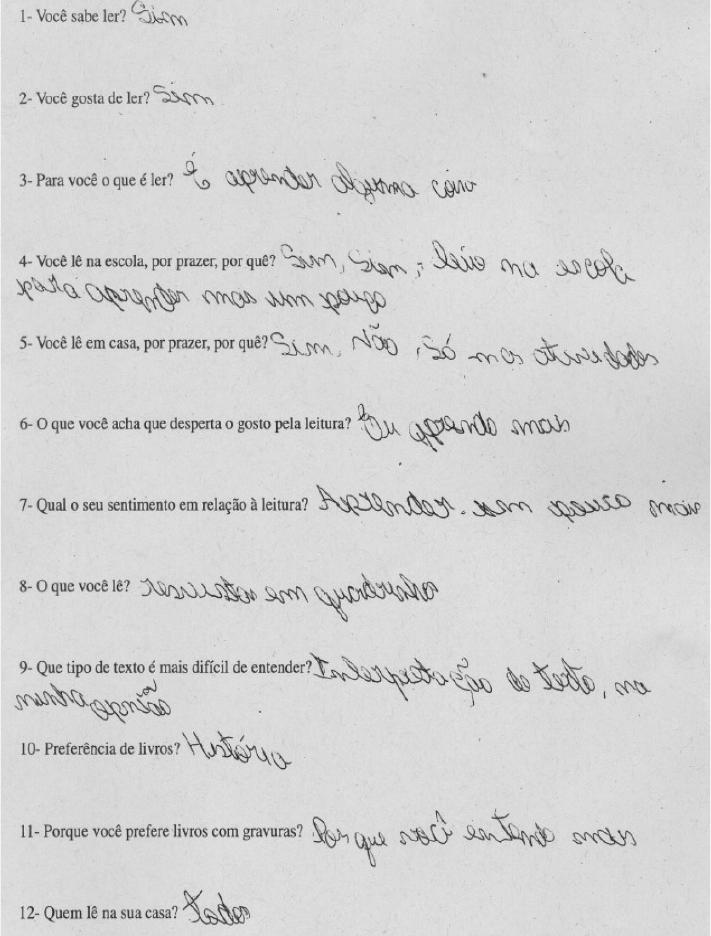 1- Você sabe ler? Sim
2- Você gosta de ler? Sim
3- Para você o que é ler? É aprender alguma coisa
4- Você lê na escola, por prazer, por quê? Sim, Sim, leio na escola
para aprender mas um pouco
5- Você lê em casa, por prazer, por quê? Sim, Não, Só nas atividades
6- O que você acha que desperta o gosto pela leitura? Eu aprendo mais
7- Qual o seu sentimento em relação à leitura? Aprender. um pouco mais
8- O que você lê? revistas em quadrinho
9- Que tipo de texto é mais difícil de entender? Interpretação de texto, na
minha opnião
10- Preferência de livros? História
11- Porque você prefere livros com gravuras? Por que você entende mais
12- Quem lê na sua casa? todos